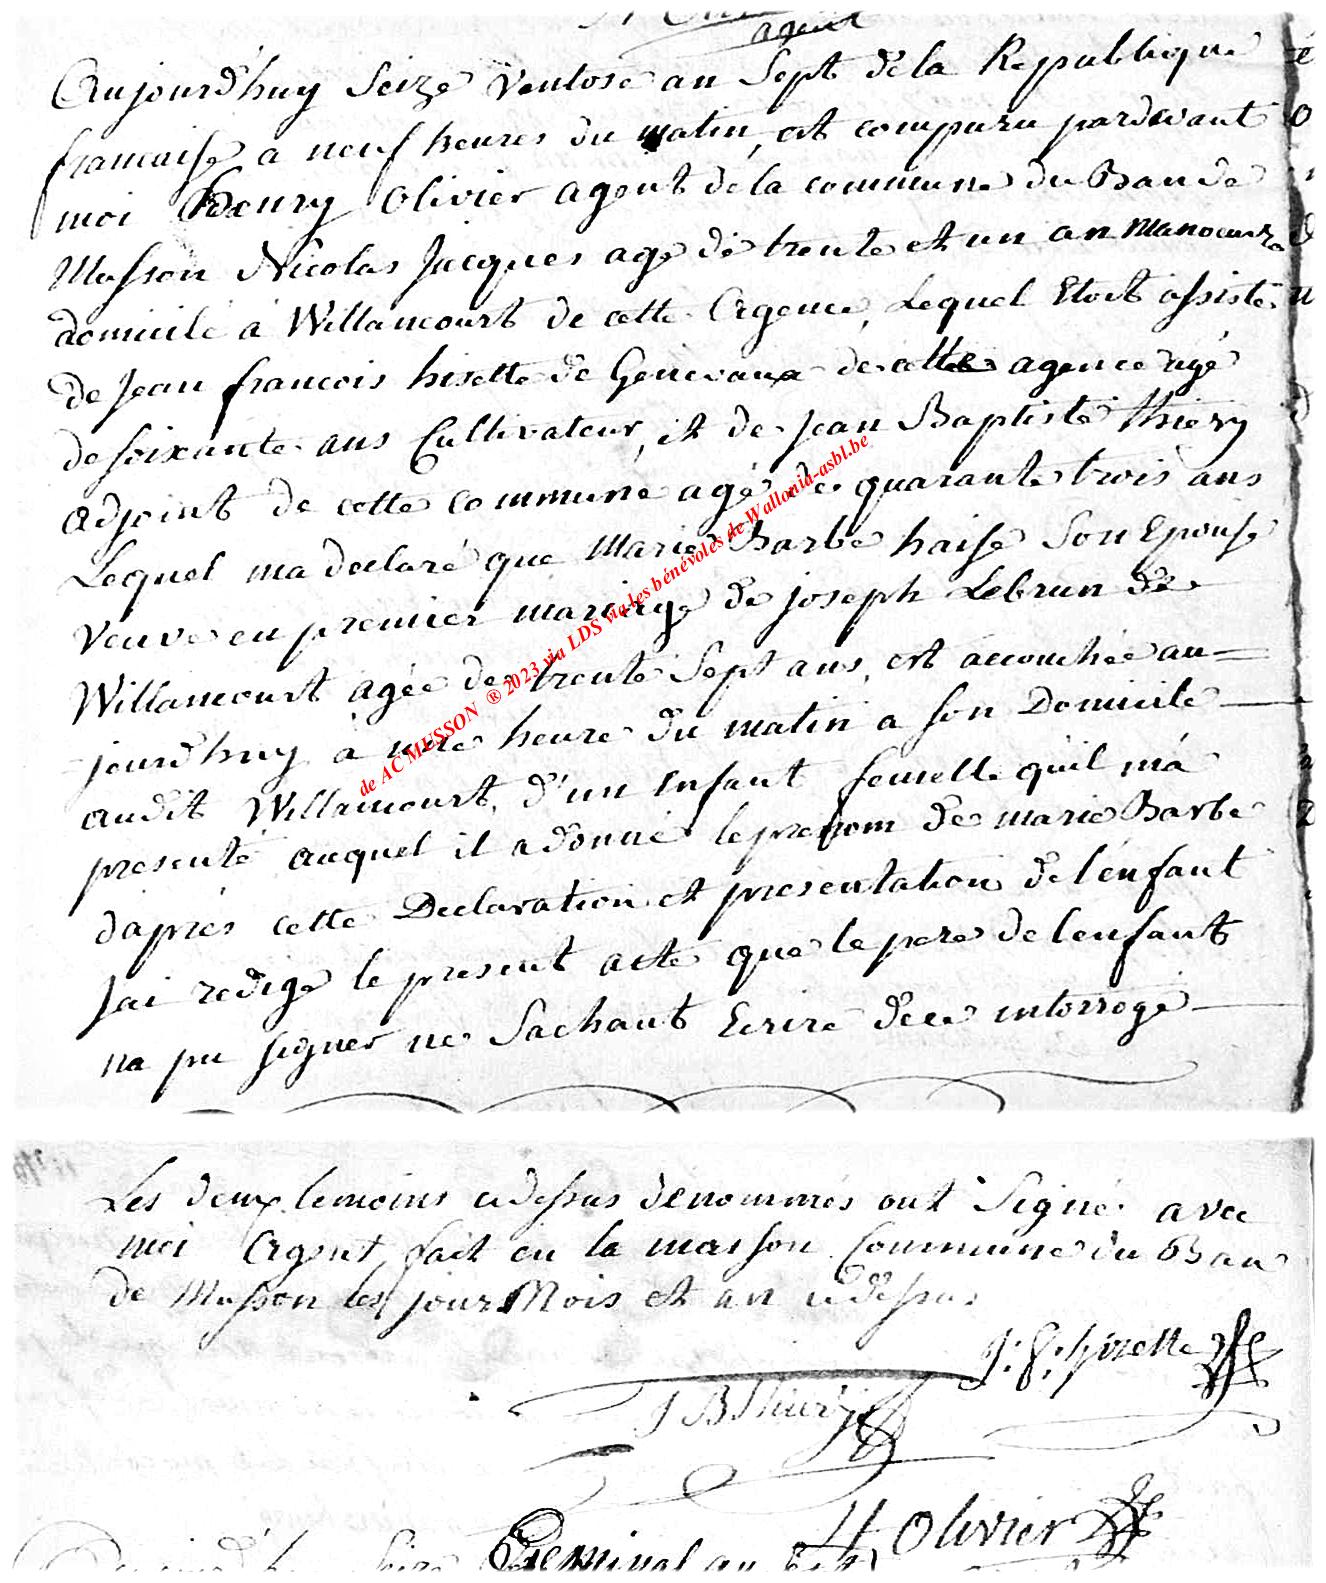 agent
Aujourd'huy Seize Ventose an Sept de la Republique
francaise a neuf heures du matin, est comparu pardevant
moi Henry Olivier agent de la commune du Ban de
Musson Nicolas Jacques agé de trente et un an Manoeuvre
domicilé a Willancourt de cette Agence, Lequel Etoit assisté
de Jean francois hisette de Genevaux de cette agence agé
de soixante ans Cultivateur, et de Jean Baptiste thiery
adjoint de cette commune agé de quarante trois ans
Lequel ma declaré que Marie Barbe haise Son Epouse
Veuve en premier mariage de joseph Lebrun de
Willancourt agée de trente Sept ans, est accouchée au=
=jourd'huy a une heure du matin a son Domicile
audit Willancourt, d'un Enfant femelle quil ma
presenté auquel il a donné le prenom de marie Barbe
d'apres cette Declaration et presentation de l'enfant
J'ai redigé le present acte que le pere de l'enfant
na pu signer ne Sachant Ecrire de ce interrogé
Les deux temoins cidessus denommés ont Signé avec
moi Agent, fait en la maison Commune du Ban
de Musson les jour Mois et an cidessus
J: F: hizette
J B Thiery
H Olivier
Seize Germinal an Sept
de AC MUSSON ® 2023 via LDS via les bénévoles de Wallonia-asbl.be